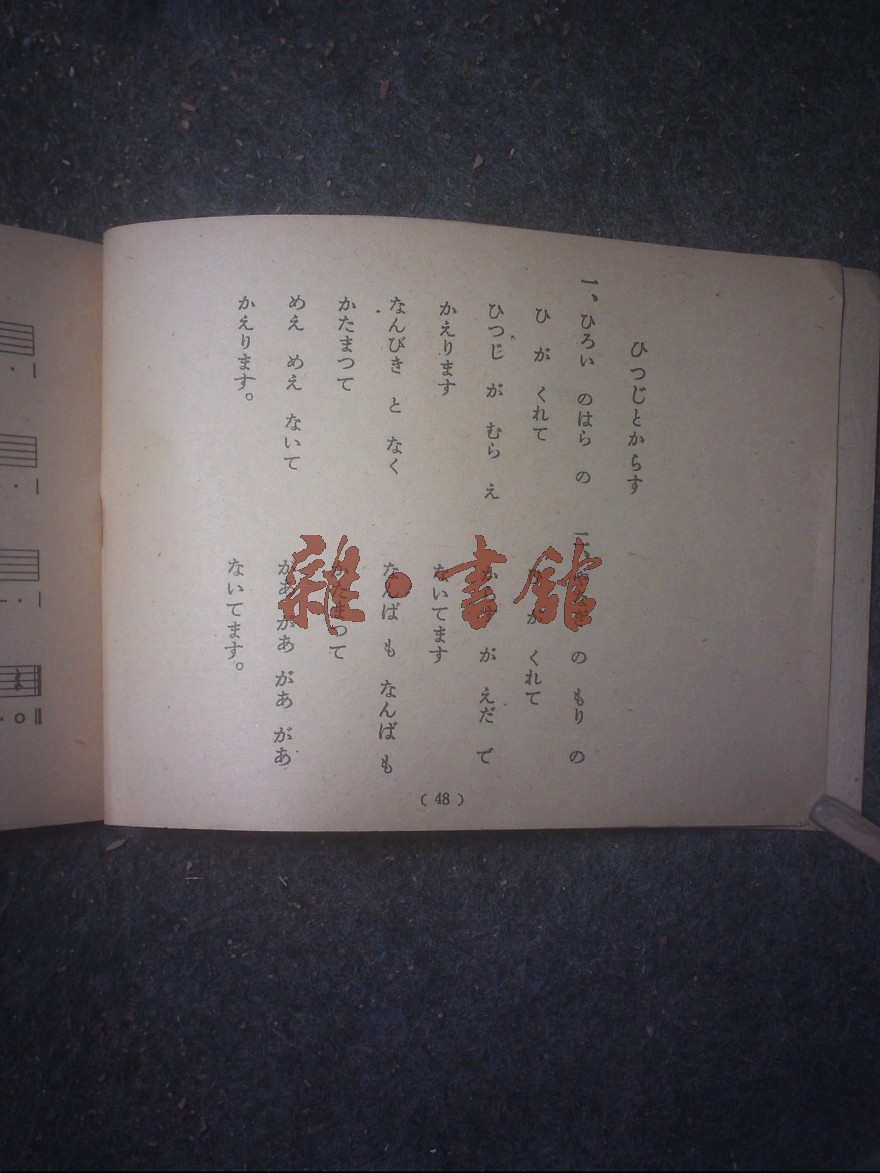 ひつじとからす
一、ひろい のはら の
ひ が くれて
ひつじ が むら え
かえります
なんびき と なく
かたまつて
めえ めえ ないて
かえります。
二、 の もり の
ひ が くれて
からす が えだ で
ないてます
なんば も なんば も
かたまつて
があ があ があ があ
ないてます。
( 48 )
雜·書館